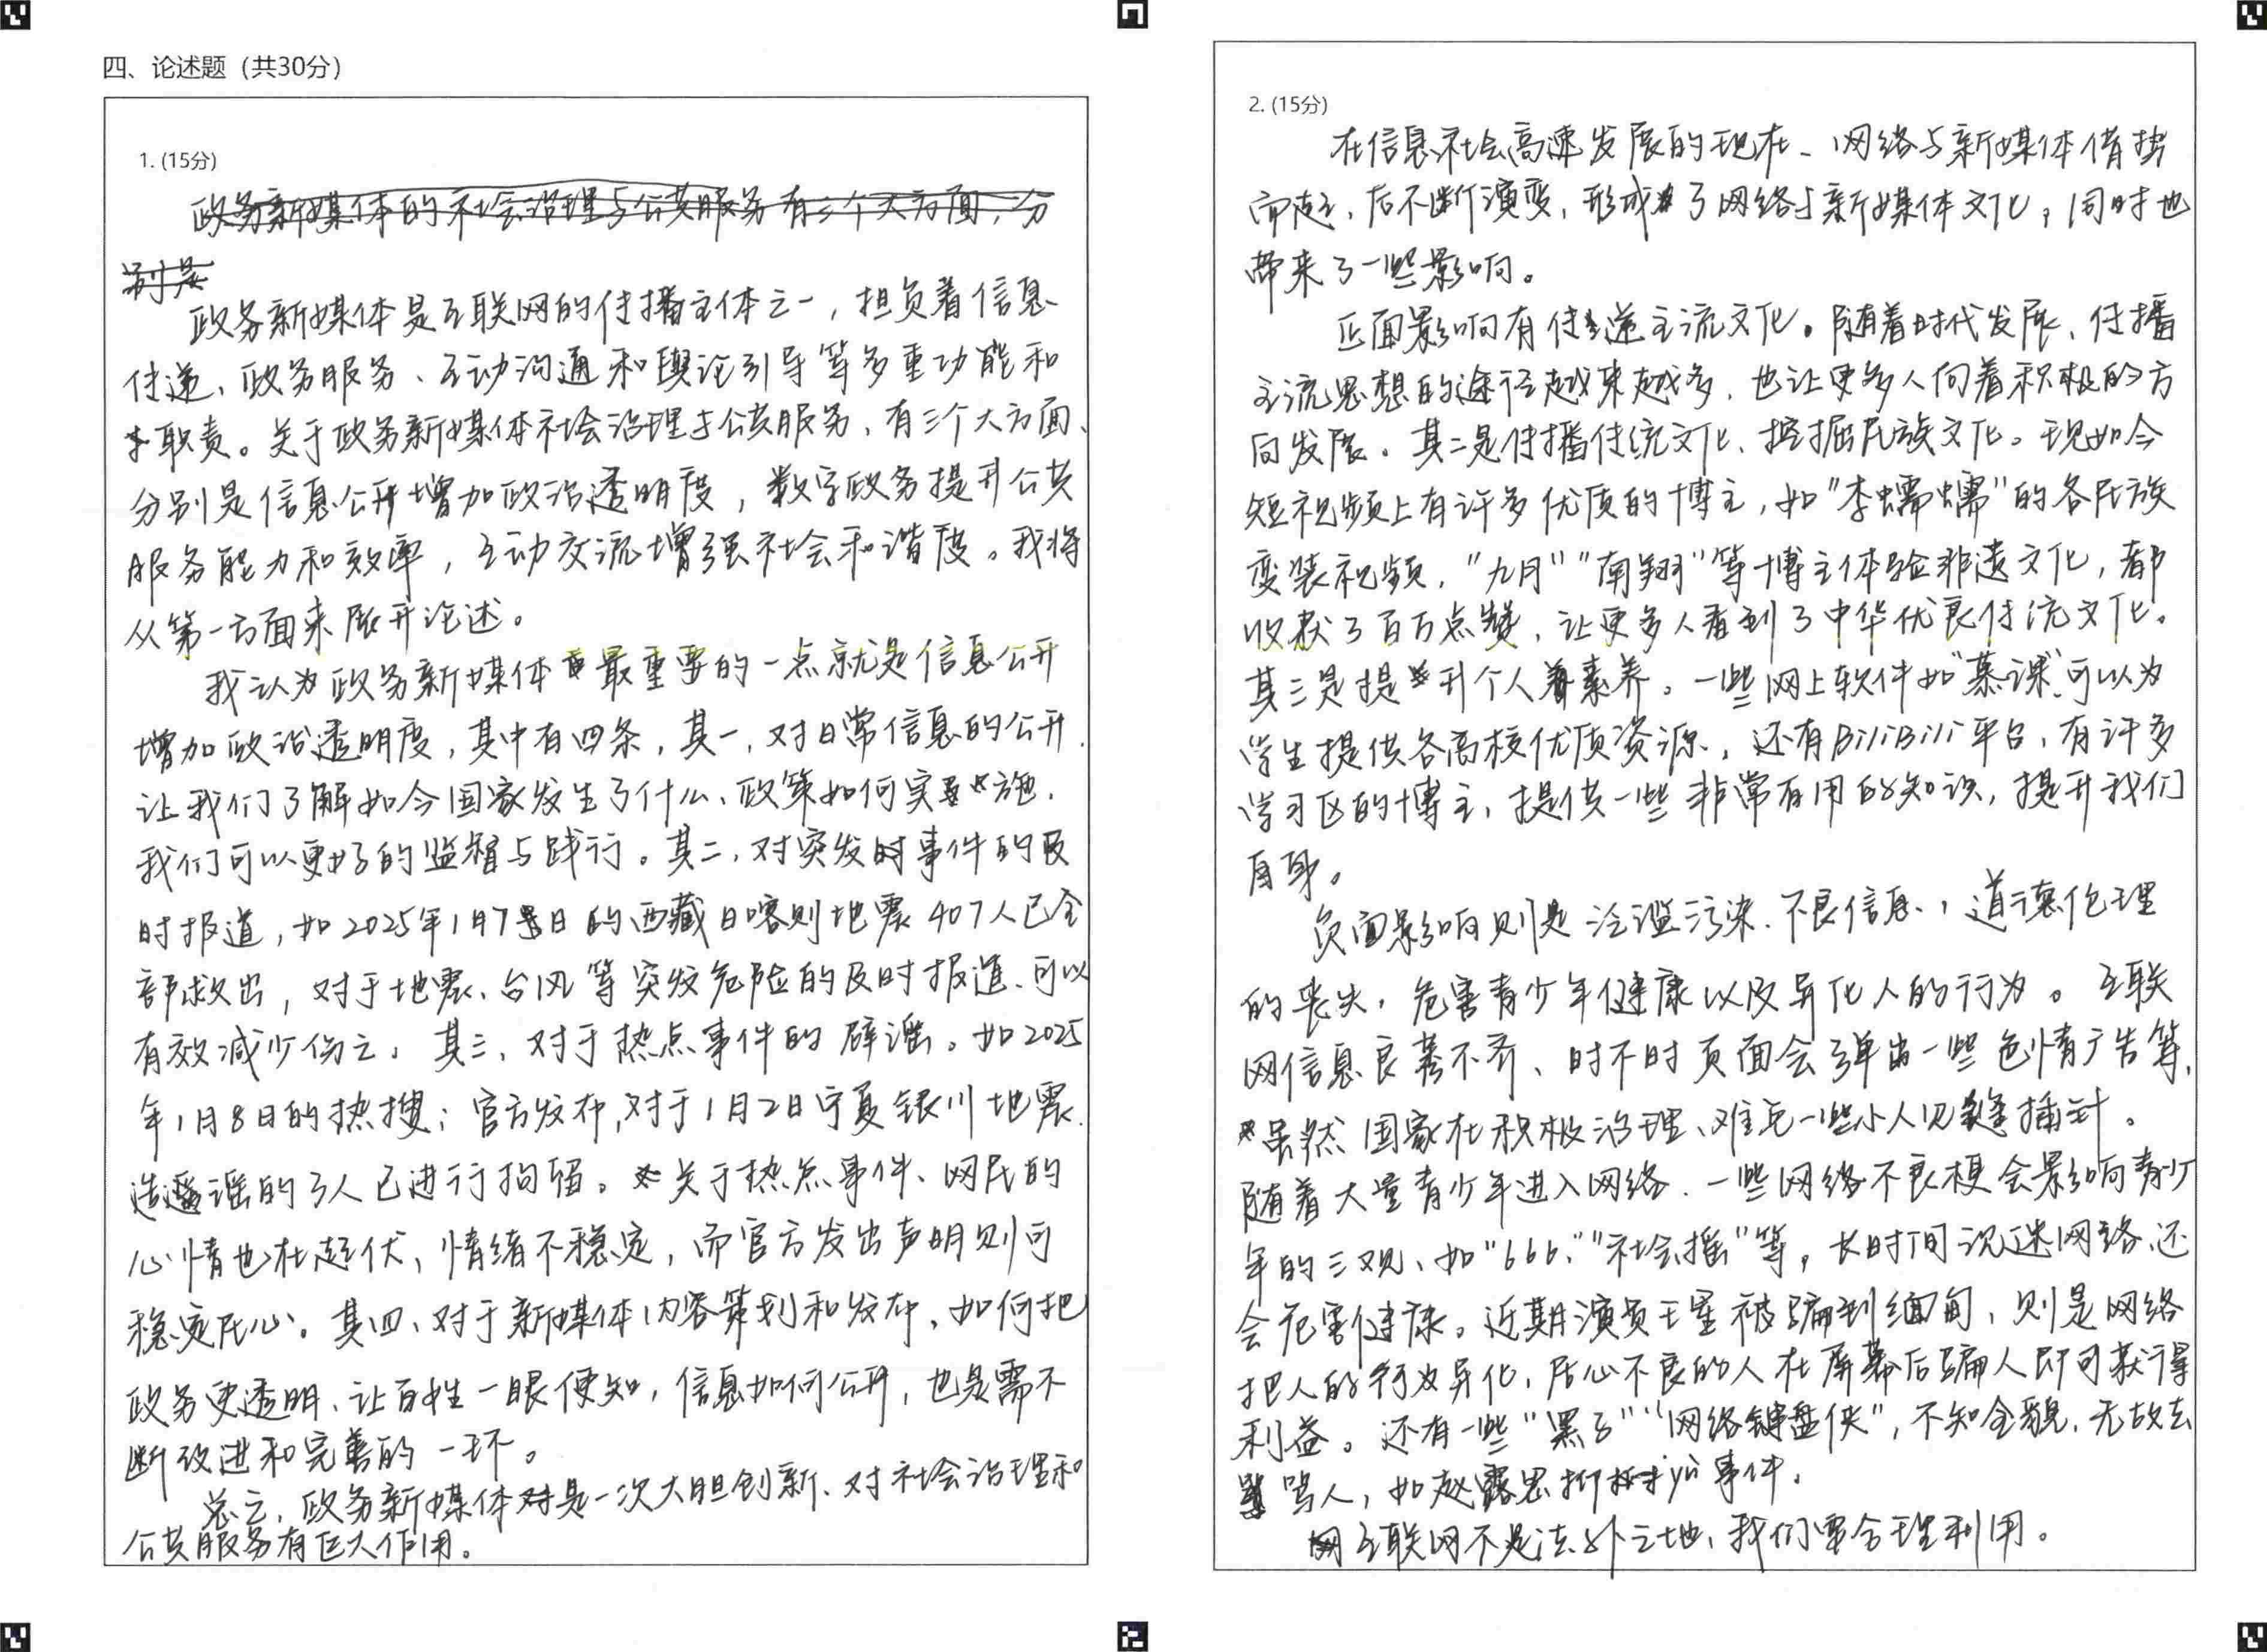 四、论述题（共30分）
1. (15分)
政务新媒体的社会治理与公共服务有三个大方面，分
别是
政务新媒体是互联网的传播主体之一，担负着信息
传递、政务服务、互动沟通和舆论引导等多重功能和
职责。关于政务新媒体社会治理与公共服务，有三个大方面、
分别是信息公开增加政治透明度，数字政务提升公共
服务能力和效率，互动交流增强社会和谐度。我将
从第一方面来展开论述。
我认为政务新媒体最重要的一点就是信息公开
增加政治透明度，其中有四条，其一，对日常信息的公开、
让我们了解如今国家发生了什么、政策如何实施，
我们可以更好的监督与践行。其二，对突发事件的及
时报道，如2025年1月7日的西藏日喀则地震407人已全
部救出，对于地震、台风等突发危险的及时报道、可以
有效减少伤亡。其三、对于热点事件的辟谣。如2025
年1月8日的热搜：官方发布，对于1月2日宁夏银川地震
造谣的3人已进行拘留。关于热点事件、网民的
心情也在起伏，情绪不稳定，而官方发出声明则可
稳定民心。其四、对于新媒体内容策划和发布，如何把
政务更透明、让百姓一眼便知，信息如何公开，也是需不
断改进和完善的一环。
总之，政务新媒体是一次大胆创新、对社会治理和
公共服务有巨大作用。
2. (15分)
在信息社会高速发展的现在、网络与新媒体借势
而起，后不断演变，形成了网络与新媒体文化，同时也
带来了一些影响。
正面影响有传递主流文化。随着时代发展、传播
主流思想的途径越来越多，也让更多人向着积极的方
向发展。其二是传播传统文化、挖掘民族文化。现如今
短视频上有许多优质的博主，如“李蠕蠕”的各民族
变装视频，“九月”“南翔”等博主体验非遗文化，都
收获了百万点赞，让更多人看到了中华优良传统文化。
其三是提升个人素养。一些网上软件如“慕课”可以为
学生提供各高校优质资源，还有BiliBili平台，有许多
学习区的博主，提供一些非常有用的知识，提升我们
自身。
负面影响则是泛滥污染、不良信息，道德伦理
的丧失，危害青少年健康以及异化人的行为。互联
网信息良莠不齐、时不时页面会弹出一些色情广告等，
虽然国家在积极治理、难免一些小人见缝插针。
随着大量青少年进入网络、一些网络不良梗会影响青少
年的三观、如“666”“社会摇”等，长时间沉迷网络、还
会危害健康。近期演员王星被骗到缅甸，则是网络
把人的行为异化，居心不良的人在屏幕后骗人即可获得
利益。还有一些“黑子”“网络键盘侠”，不知全貌，无故去
骂人，如赵露思抑yù事件。
互联网不是法外之地，我们要合理利用。